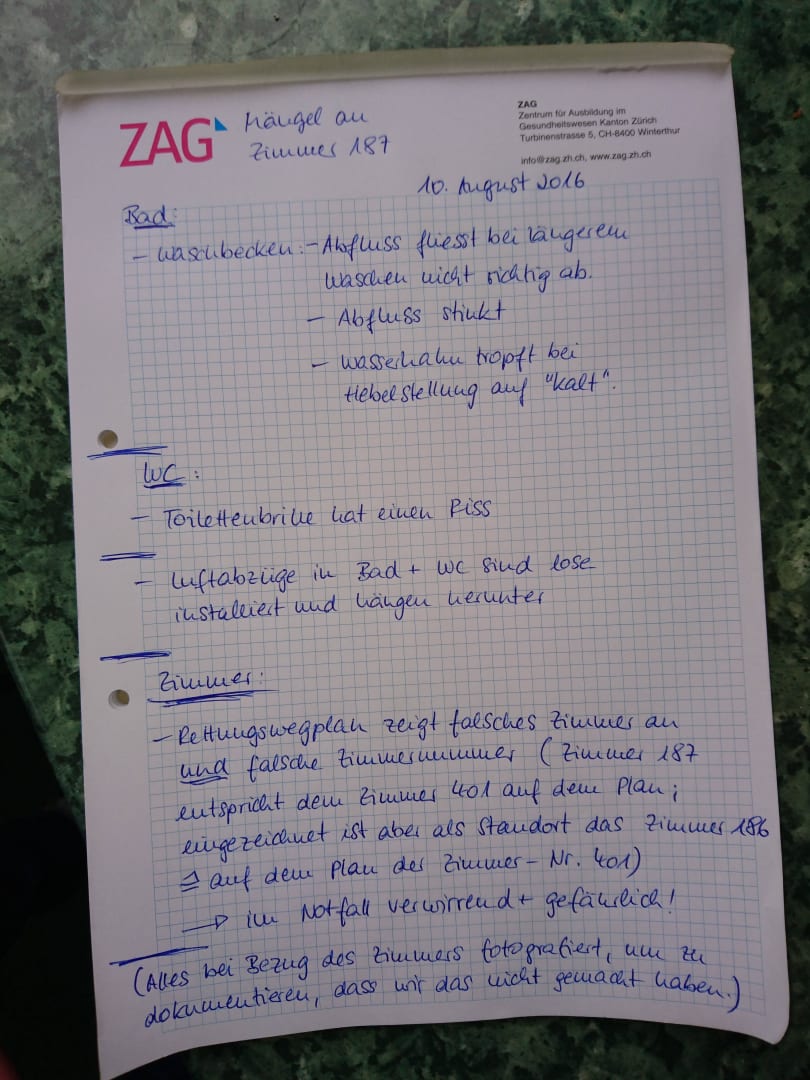 ZAG
Mängel an
Zimmer 187
ZAG
Zentrum für Ausbildung im
Gesundheitswesen Kanton Zürich
Turbinenstrasse 5, CH-8400 Winterthur
info@zag.zh.ch, www.zag.zh.ch
10. August 2016
Bad:
- Waschbecken: - Abfluss fliesst bei längerem
Waschen nicht richtig ab.
- Abfluss stinkt
- Wasserhahn tropft bei
Hebelstellung auf "kalt".
WC:
- Toilettenbrille hat einen Riss
- Luftabzüge in Bad + WC sind lose
installiert und hängen herunter
Zimmer:
- Rettungswegplan zeigt falsches Zimmer an
und falsche Zimmernummer (Zimmer 187
entspricht dem Zimmer 401 auf dem Plan;
eingezeichnet ist aber als Standort das Zimmer 186
≙ auf dem Plan der Zimmer-Nr. 401)
→ im Notfall verwirrend + gefährlich!
(Alles bei Bezug des Zimmers fotografiert, um zu
dokumentieren, dass wir das nicht gemacht haben.)